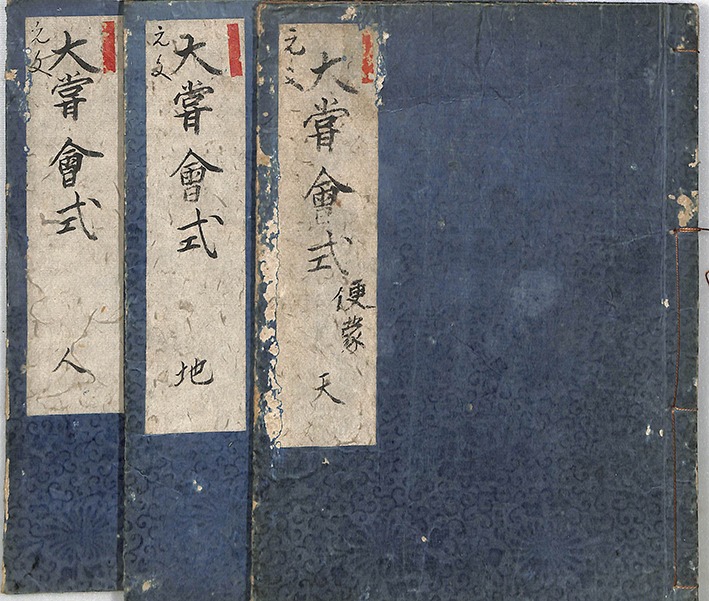 元文
大嘗會式
便蒙
天
元文
大嘗會式
地
元文
大嘗會式
人